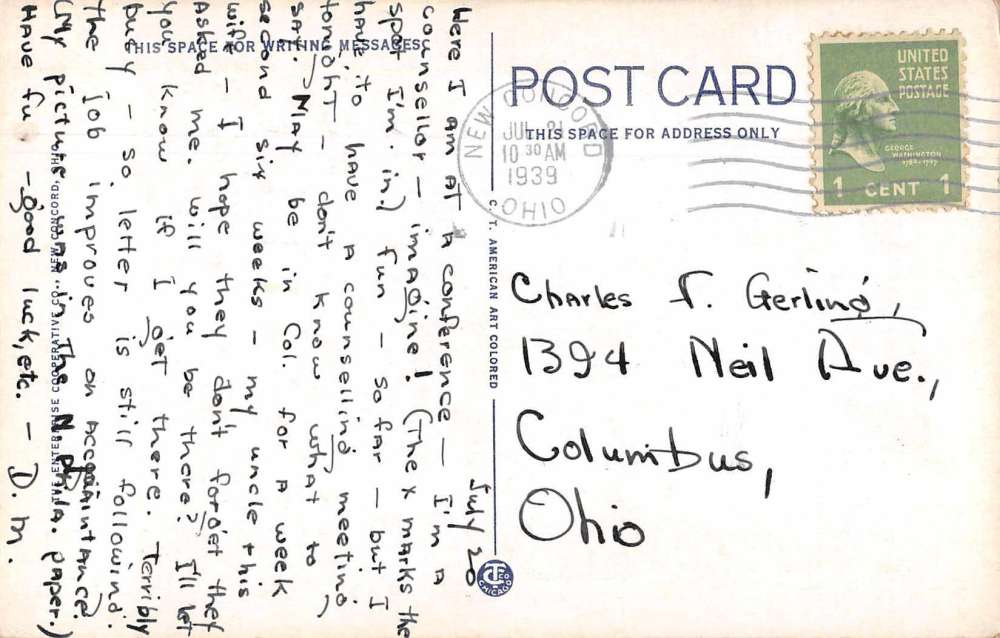 THIS SPACE FOR WRITING MESSAGES
POST CARD
THIS SPACE FOR ADDRESS ONLY
UNITED
STATES
POSTAGE
GEORGE
WASHINGTON
1789-1797
1 CENT 1
NEW CONCORD
JUL 21
10 30 AM
1939
OHIO
July 20
Here I am at a conference – I'm a
counsellor – imagine! (The x marks the
spot I'm in.) fun – so far – but I
have to have a counselling meeting
tonight – don't know what to
say. May be in Col. for a week
second six weeks – my uncle + his
wife – I hope they don't forget they
asked me. will you be there? I'll let
you know if I get there. Terribly
busy – so, letter is still following.
The job improves on accqaintance.
(My picture was in the N. Phila. paper.)
Have fu – good luck, etc. – D. M.
ENTERPRISE COOPERATIVE CO., NEW CONCORD,
C. T. AMERICAN ART COLORED
CHICAGO
Charles F. Gerling,
1394 Neil Ave.,
Columbus,
Ohio